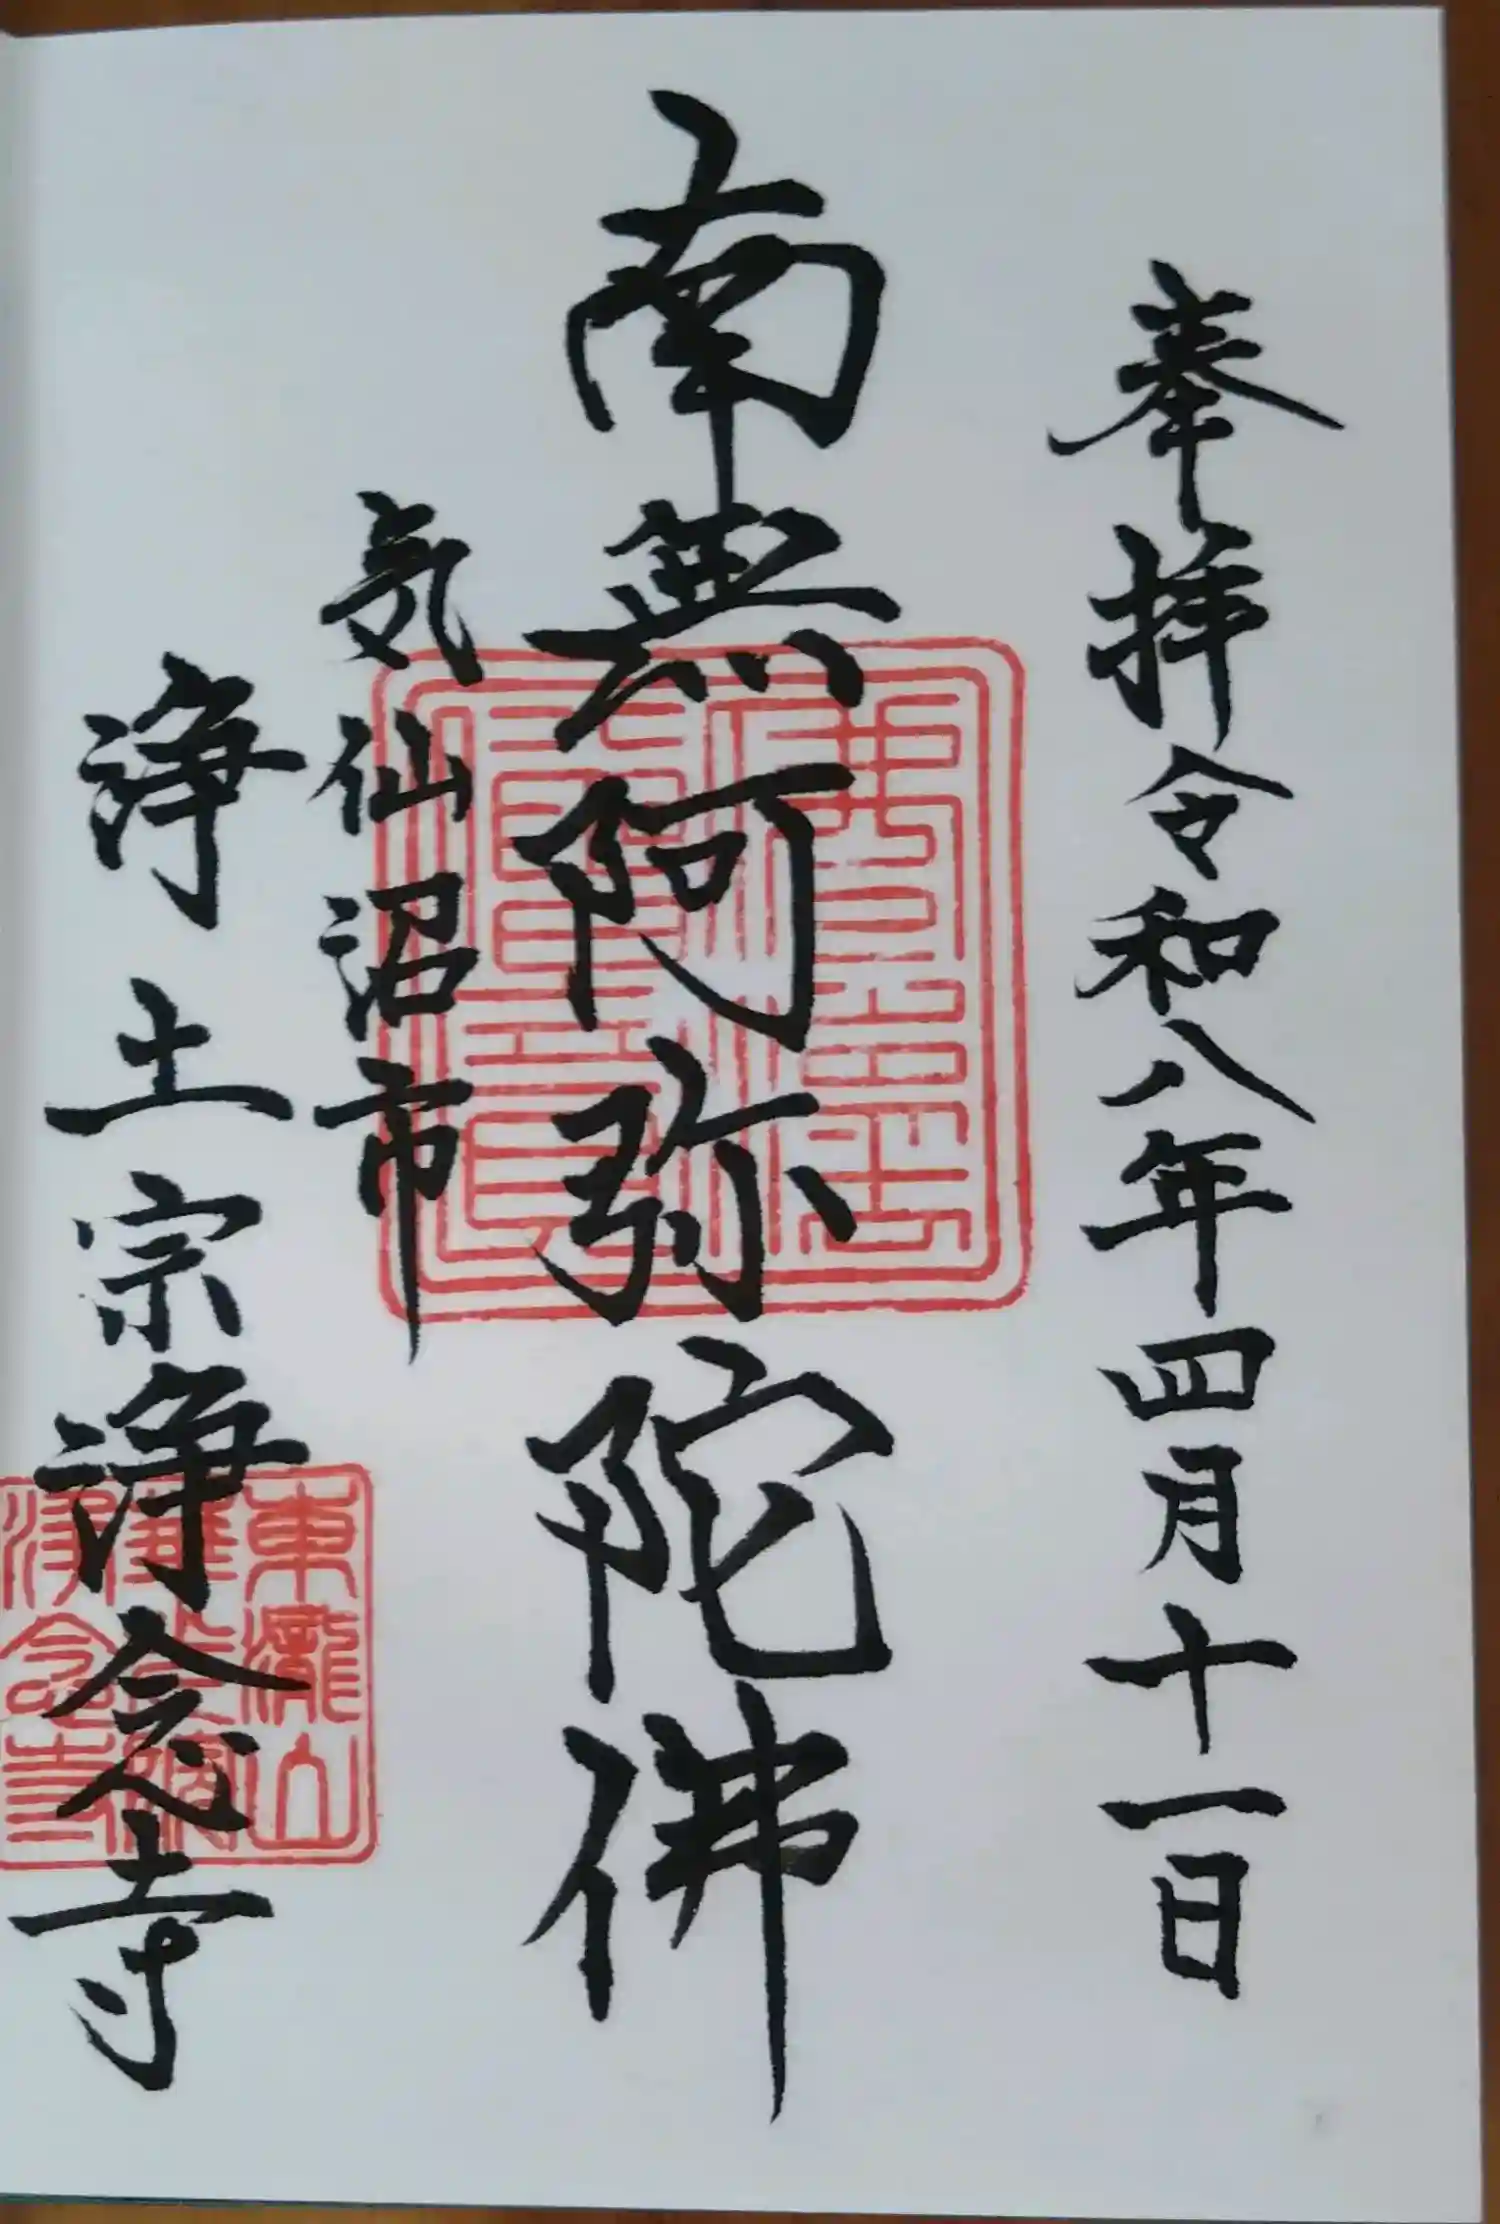 奉拝令和八年四月十一日
南無阿弥陀佛
気仙沼市
浄土宗浄念寺
東瀧山
浄念寺